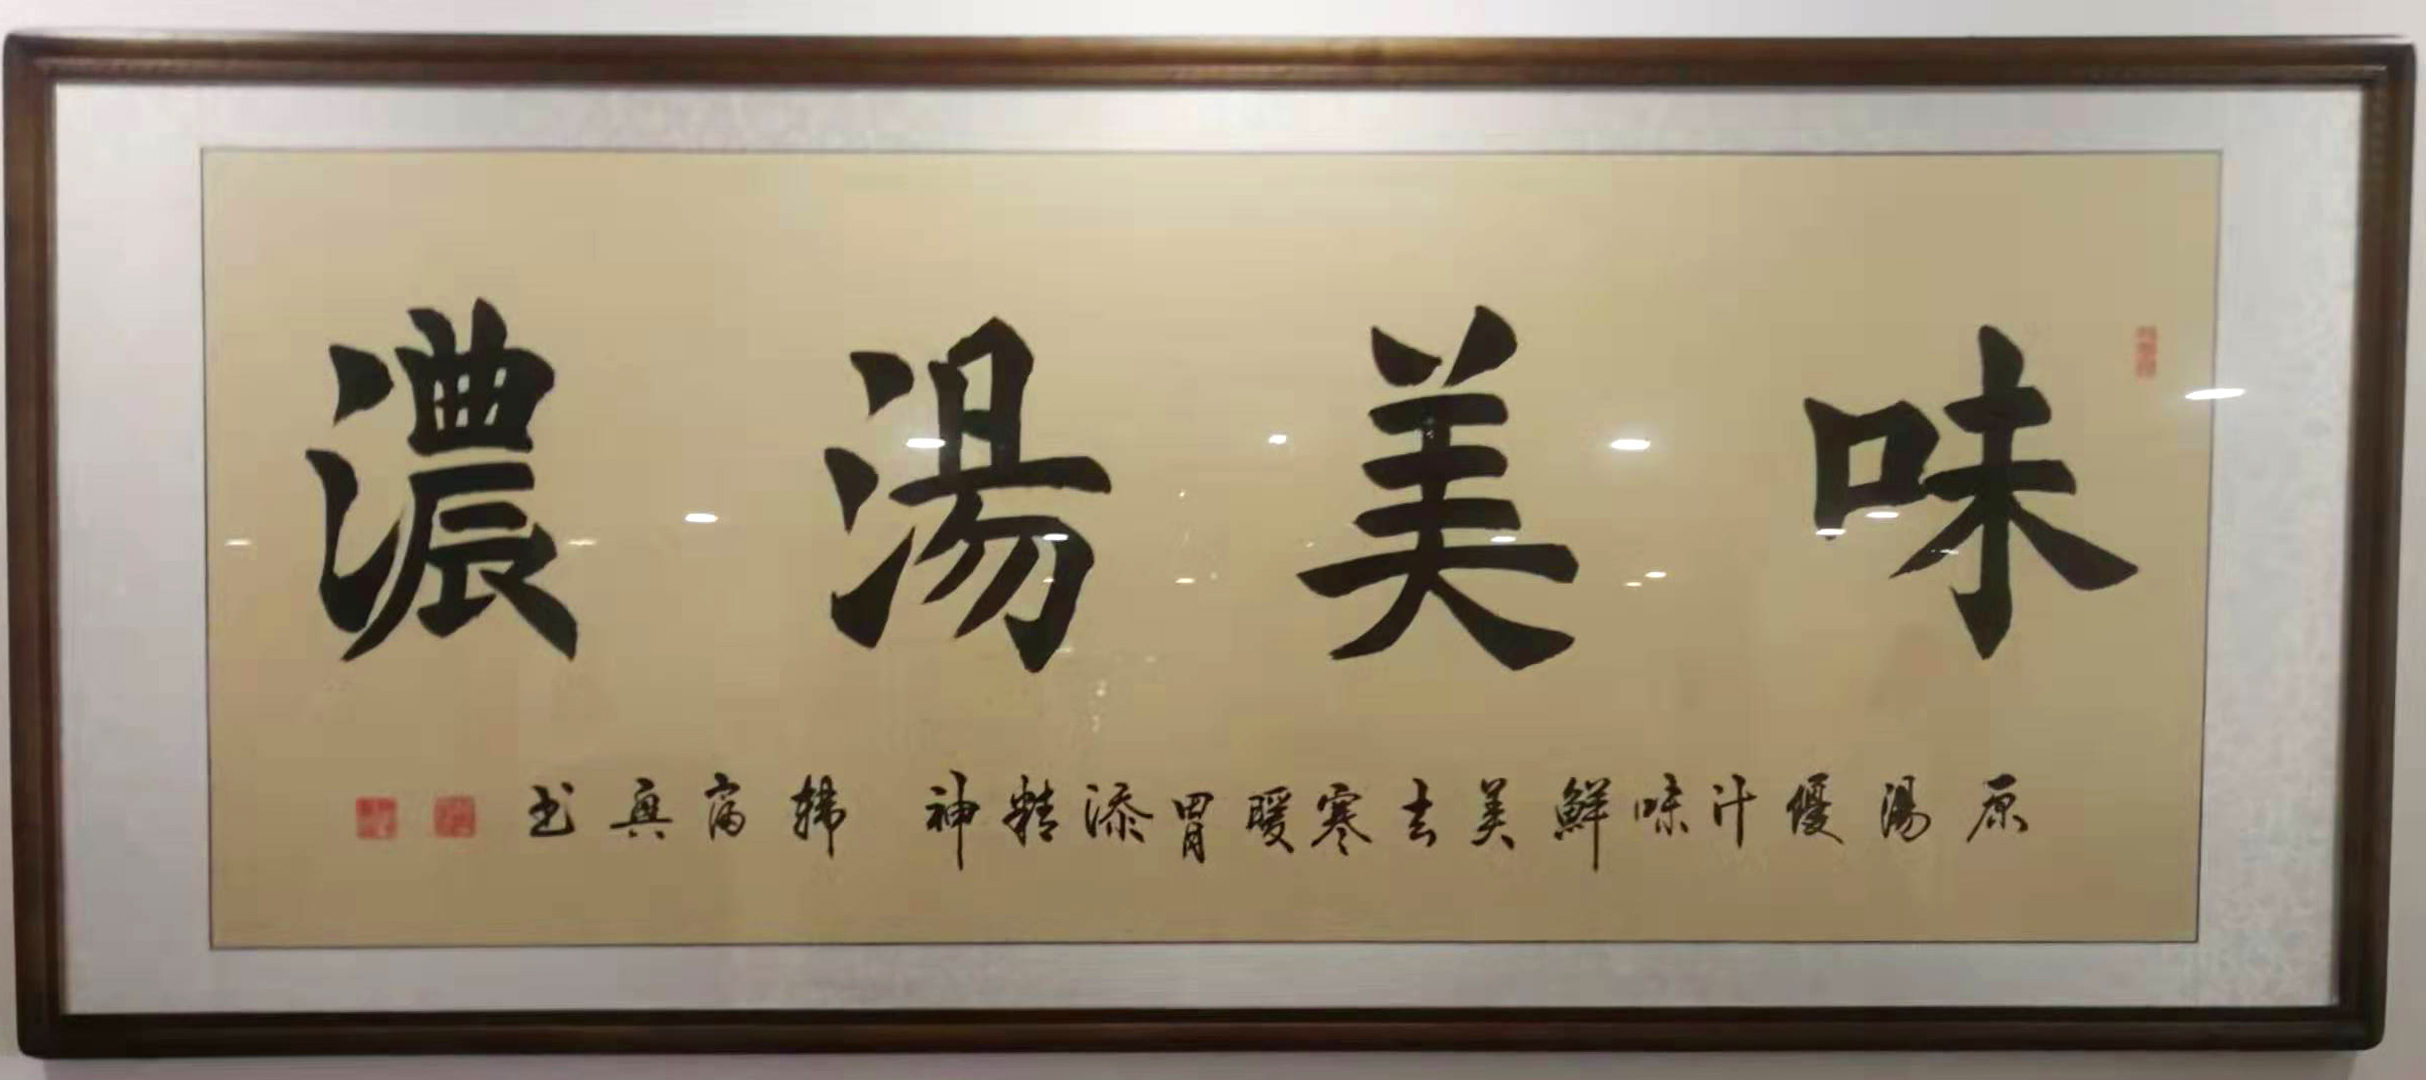 味美湯濃
原湯優汁味鮮美去寒暖胃添精神 韩富興书